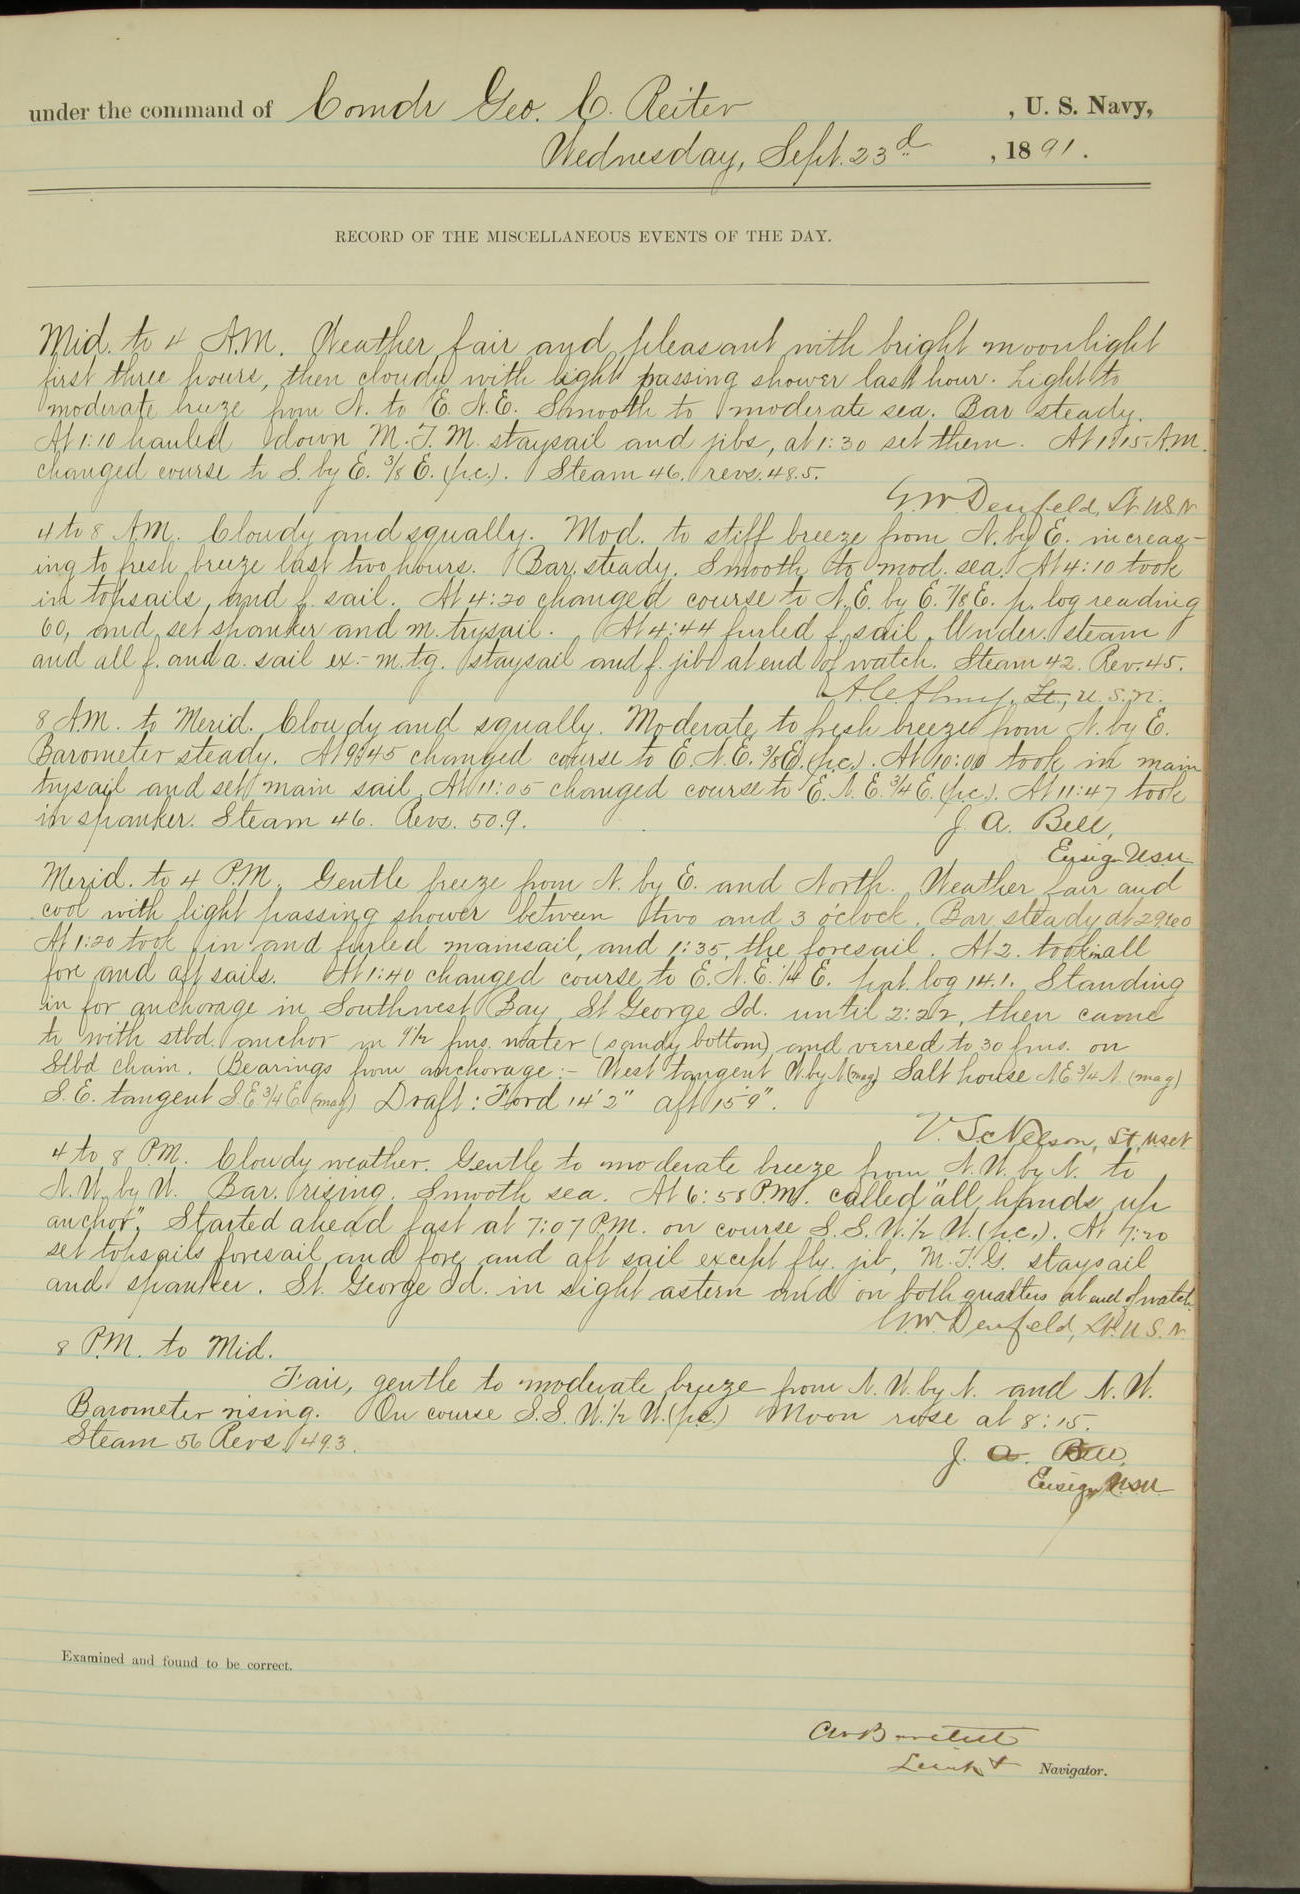 under the command of Comdr Geo. C. Reiter, U. S. Navy,
Wednesday, Sept. 23d, 1891.
RECORD OF THE MISCELLANEOUS EVENTS OF THE DAY.
Mid. to 4 A.M. Weather fair and pleasant with bright moonlight
first three hours, then cloudy with light passing shower last hour. Light to
moderate breeze from N. to E. N.E. Smooth to moderate sea. Bar steady.
At 1:10 hauled down M. T. M. staysail and jibs, at 1:30 set them. At 1:15 A.M.
changed course to S. by E. 3/8 E. (p.c.). Steam 46. revs. 48.5.
G.W. Denfeld, Lt. U.S.N
4 to 8 A.M. Cloudy and squally. Mod. to stiff breeze from N. by E. increas-
ing to fresh breeze last two hours. Bar. steady. Smooth to mod. sea. At 4:10 took
in topsails, and f. sail. At 4:20 changed course to N.E. by E. 7/8 E. p. log reading
60, and set spanker and m. trysail. At 4:44 furled f. sail. Under steam
and all f. and a. sail ex.- m. tg. staysail and f. jib at end of watch. Steam 42. Rev. 45.
Lt., U.S.N.
8 A.M. to Merid. Cloudy and squally. Moderate to fresh breeze from N. by E.
Barometer steady. At 9:45 changed course to E. N. E. 3/8 E. (p.c.). At 10:00 took in main
trysail and set main sail. At 11:05 changed course to E. N. E. 3/4 E. (p.c.). At 11:47 took
in spanker. Steam 46. Revs. 50.9.
J. A. Bell,
Ensign U.S.N.
Merid. to 4 P.M. Gentle breeze from N. by E. and North. Weather fair and
cool with light passing shower between two and 3 o'clock. Bar steady at
At 1:20 took in and furled mainsail, and 1:35, the foresail. At 2. took in all
fore and aft sails. At 1:40 changed course to E. N. E. 1/4 E. pat. log 14.1. Standing
in for anchorage in Southwest Bay, St George Id. until 2:22, then came
to with stbd. anchor in 9 1/2 fms. water (sandy bottom) and veered to 30 fms. on
Stbd chain. Bearings from anchorage:- West tangent W. by N (mag) Salt house N E 3/4 N. (mag)
S. E. tangent S E 3/4 E (mag) Draft: Ford 14' 2" aft 15' 9".
V. S. Nelson, Lt, U.S.N
4 to 8 P.M. Cloudy weather. Gentle to moderate breeze from N. W. by N. to
N. W. by W. Bar. rising. Smooth sea. At 6:58 P.M. called "all hands up
anchor", Started ahead fast at 7:07 P.M. on course S. S. W. 1/2 W. (p.c.). At 7:20
set topsails foresail and fore and aft sail except fly. jib, M. T. G. staysail
and spanker. St. George Id. in sight astern and on both quarters at end of watch.
G.W. Denfeld, Lt. U.S.N.
8 P.M. to Mid.
Fair, gentle to moderate breeze from N. W. by N. and N. W.
Barometer rising. On course S. S. W. 1/2 W. (p.c.) Moon rose at 8:15.
Steam 56 Revs 49.3.
J. A. Bell,
Ensign U.S.N.
Examined and found to be correct.
Lieut Navigator.